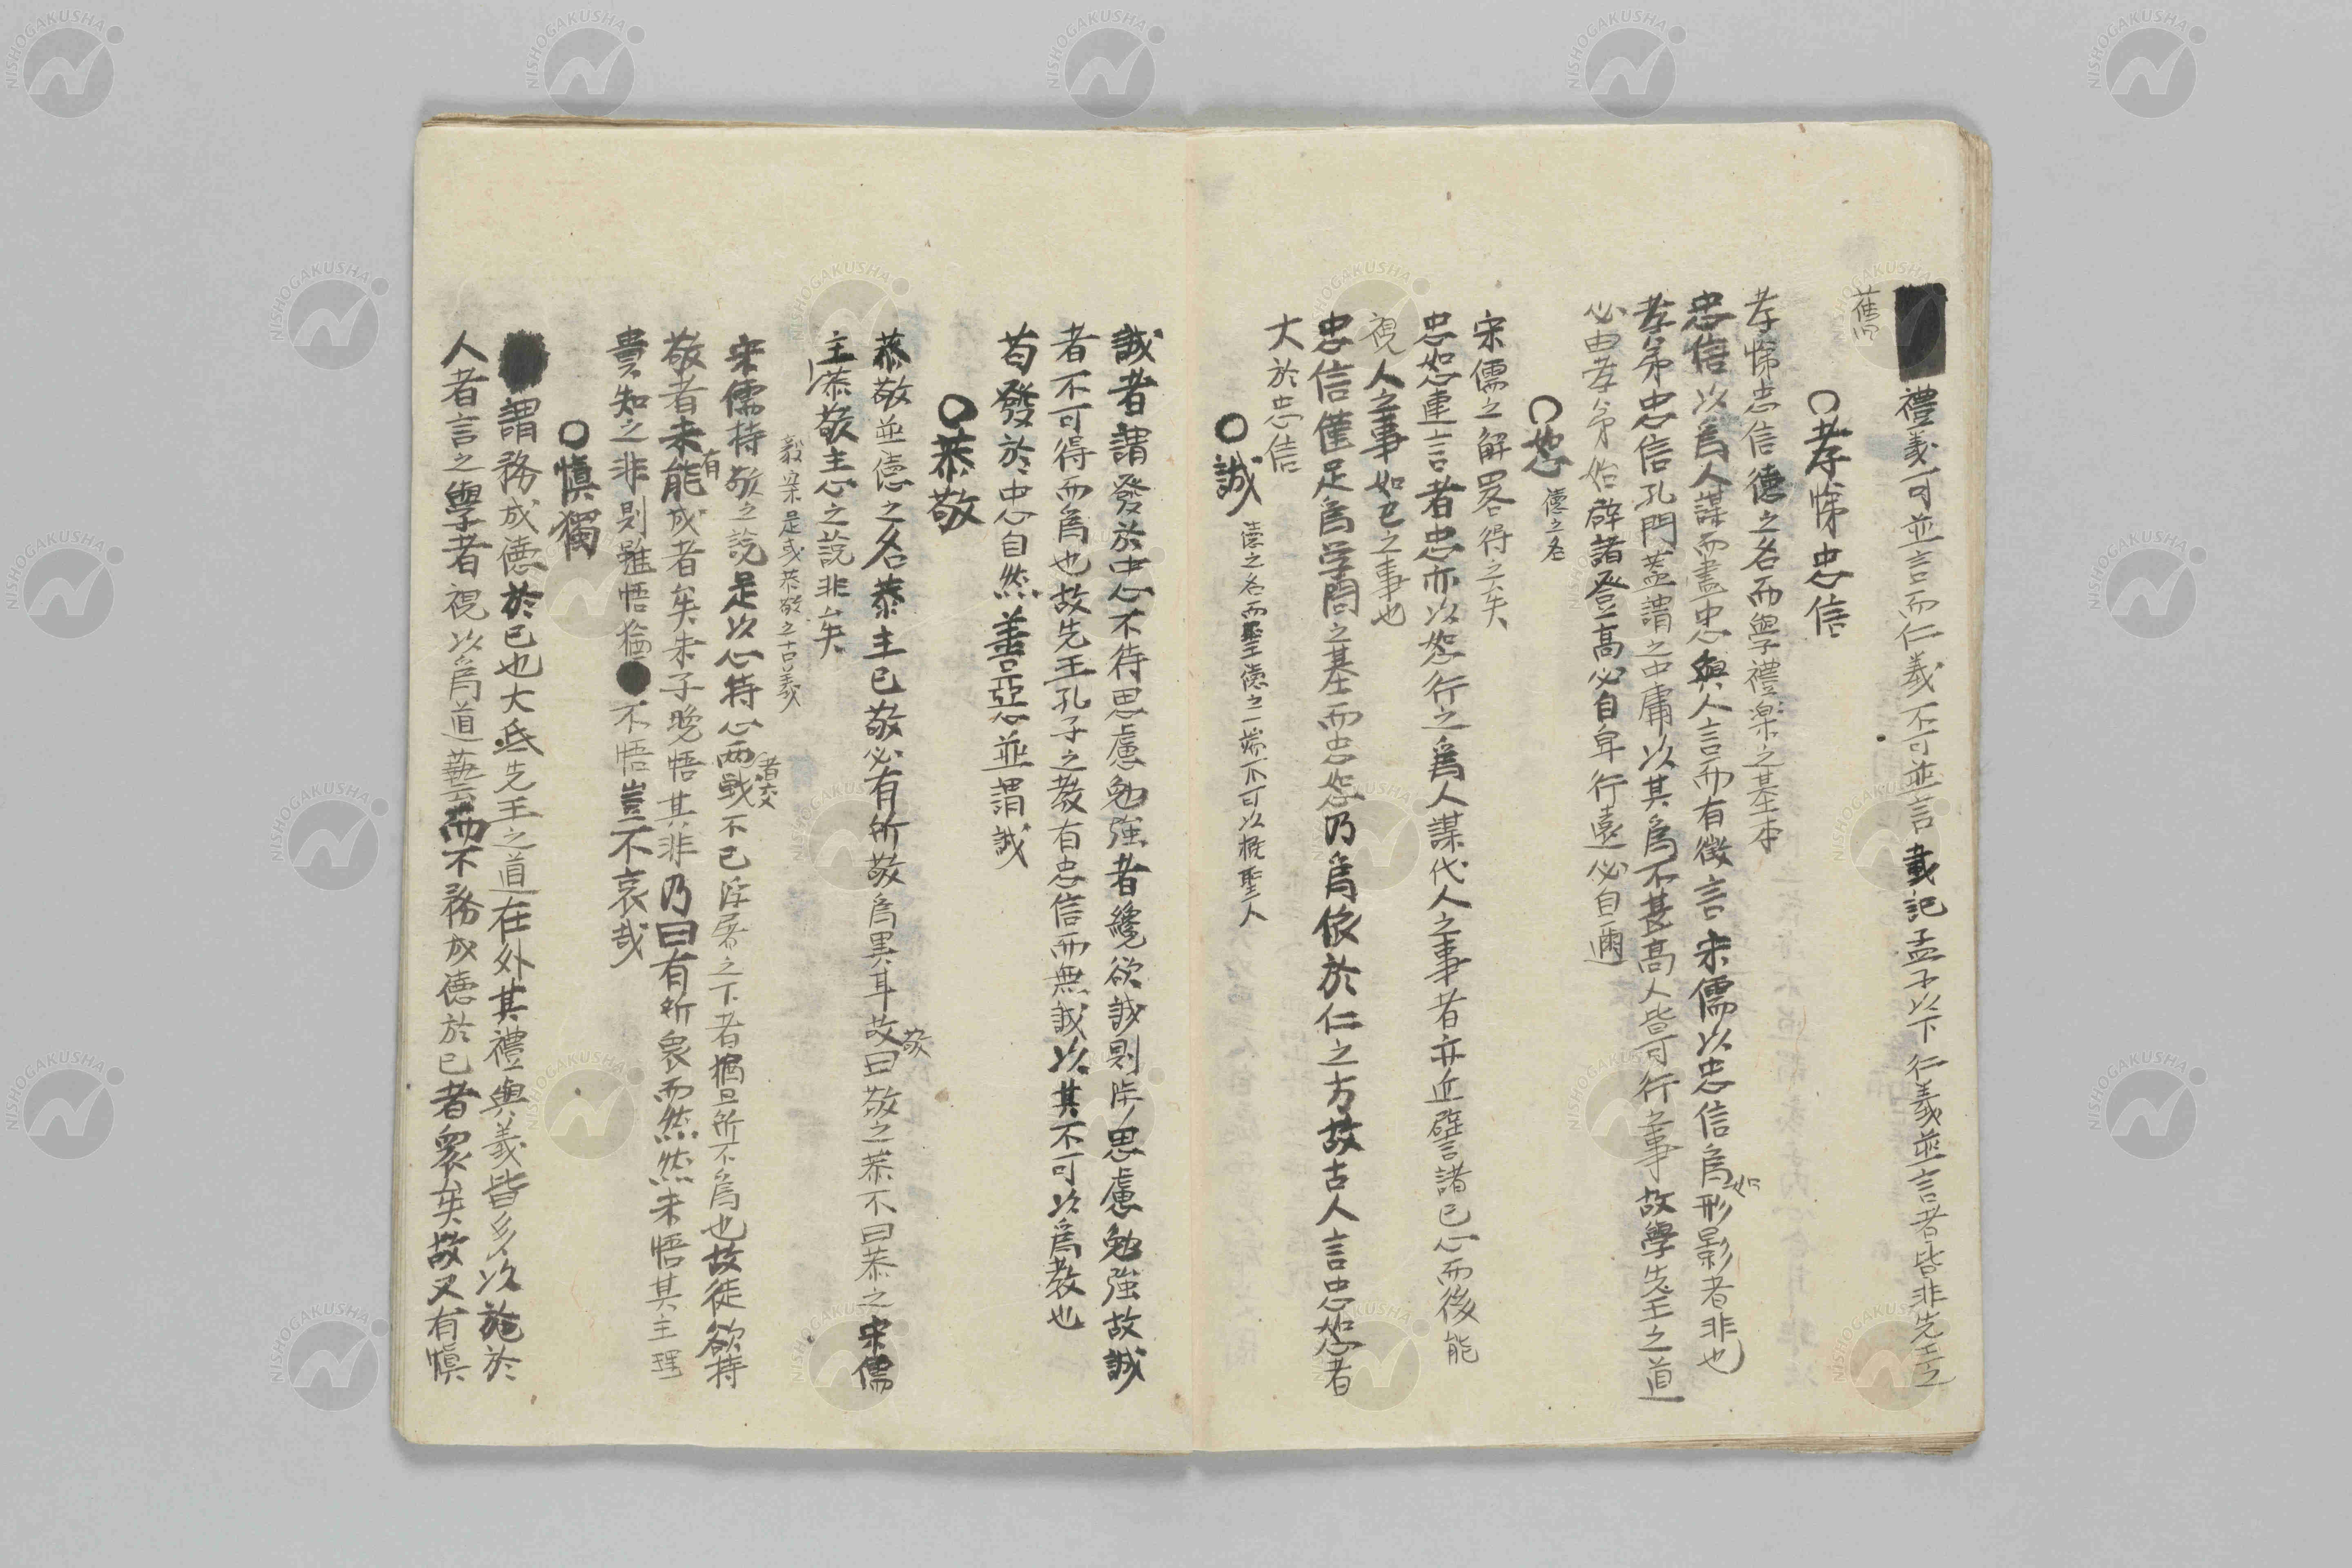 禮義可並言而仁義不可並言載記孟子以下仁義並言者皆非先王之
舊
〇孝悌忠信
孝悌忠信德之名而學禮楽之基本
忠信以爲人謀而盡中心與人言而有徴言宋儒以忠信爲如形影者非也
孝弟忠信孔門蓋謂之中庸以其爲不甚高人皆可行之事故學先王之道
必由孝弟始辟諸登高必自卑行遠必自邇
〇恕 德之名
宋儒之解畧得之矣
忠恕連言者忠亦以恕行之爲人謀代人之事者亦近譬諸己心而後能
視人之事如己之事也
忠信僅足爲学問之基而忠恕乃爲依於仁之方故古人言忠恕者
大於忠信
〇誠 德之名而聖德之一端不可以概聖人
誠者謂發於中心不待思慮勉強者纔欲誠則渉思慮勉強故誠
者不可得而爲也故先王孔子之教有忠信而無誠以其不可以爲教也
苟發於中心自然善惡並謂誠
〇恭敬
恭敬並德之名恭主己敬必有所敬爲異耳故曰敬敬之恭不曰恭之宋儒
主恭敬主心之説非矣
毅案是或恭敬之古義
宋儒持敬之説是以心持心兩者交戰不已浮屠之下者猶且所不爲也故徒欲持
敬者未能有成者矣朱子晩悟其非乃曰有所畏而然然未悟其主理
貴知之非則雖悟猶不悟豈不哀哉
〇愼獨
謂務成德於己也大氐先王之道在外其禮與義皆多以施於
人者言之學者視以爲道藝而不務成德於己者衆矣故又有愼